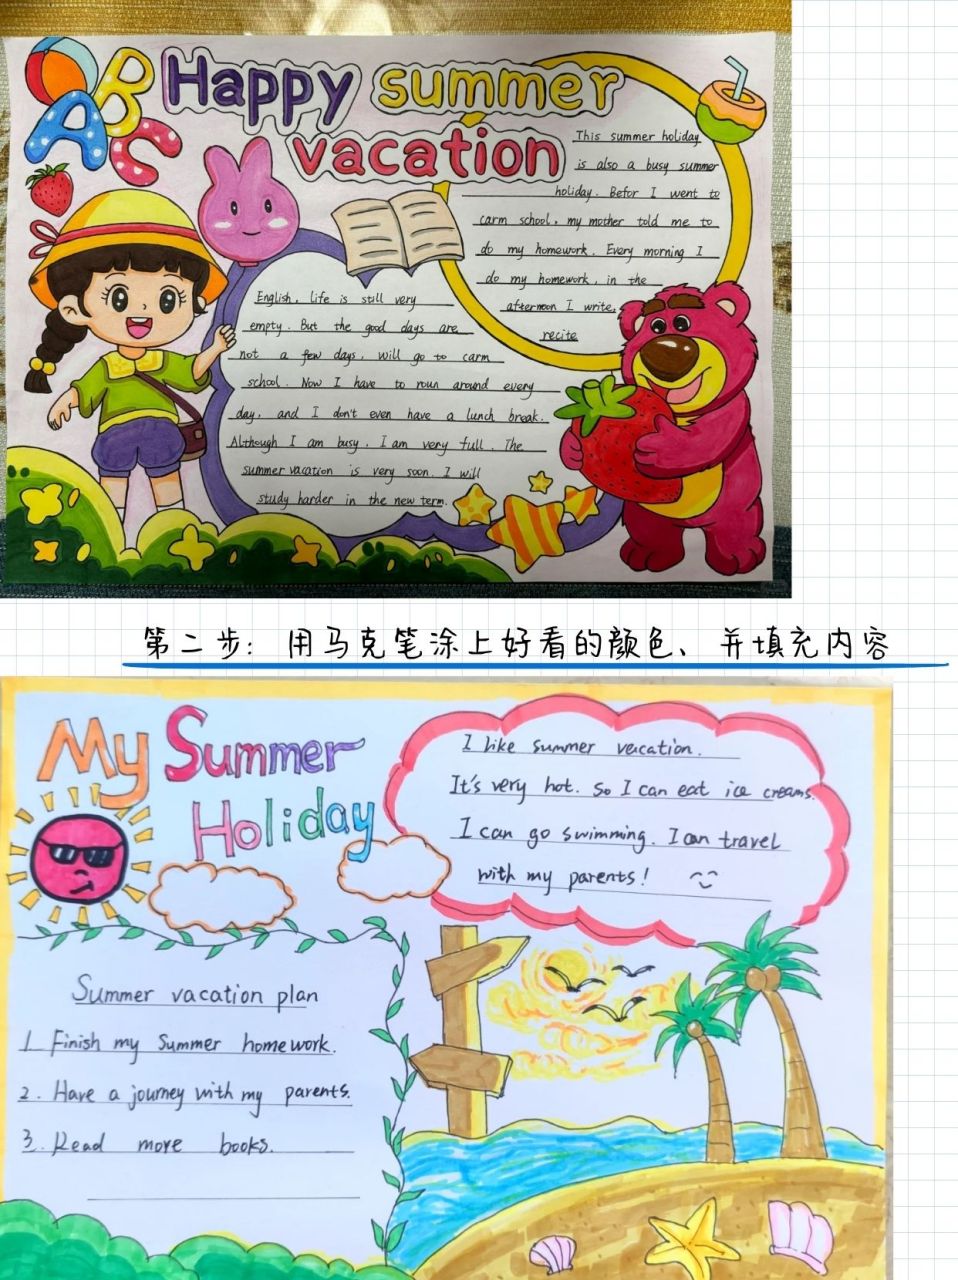 ABC
Happy summer
vacation
This summer holiday
is also a busy summer
holiday. Befor I went to
carm school, my mother told me to
do my homework. Every morning I
do my homework, in the
afternoon I write,
recite
English, life is still very
empty. But the good days are
not a few days, will go to carm
school. Now I have to roun around every
day, and I don't even have a lunch break.
Although I am busy, I am very full. The
summer vacation is very soon. I will
study harder in the new term.
第二步：用马克笔涂上好看的颜色、并填充内容
My Summer
Holiday
I like summer veacation.
It's very hot. So I can eat ice creams.
I can go swimming. I can travel
with my parents!
Summer vacation plan
1. Finish my Summer homework.
2. Have a journey with my parents.
3. Read more books.